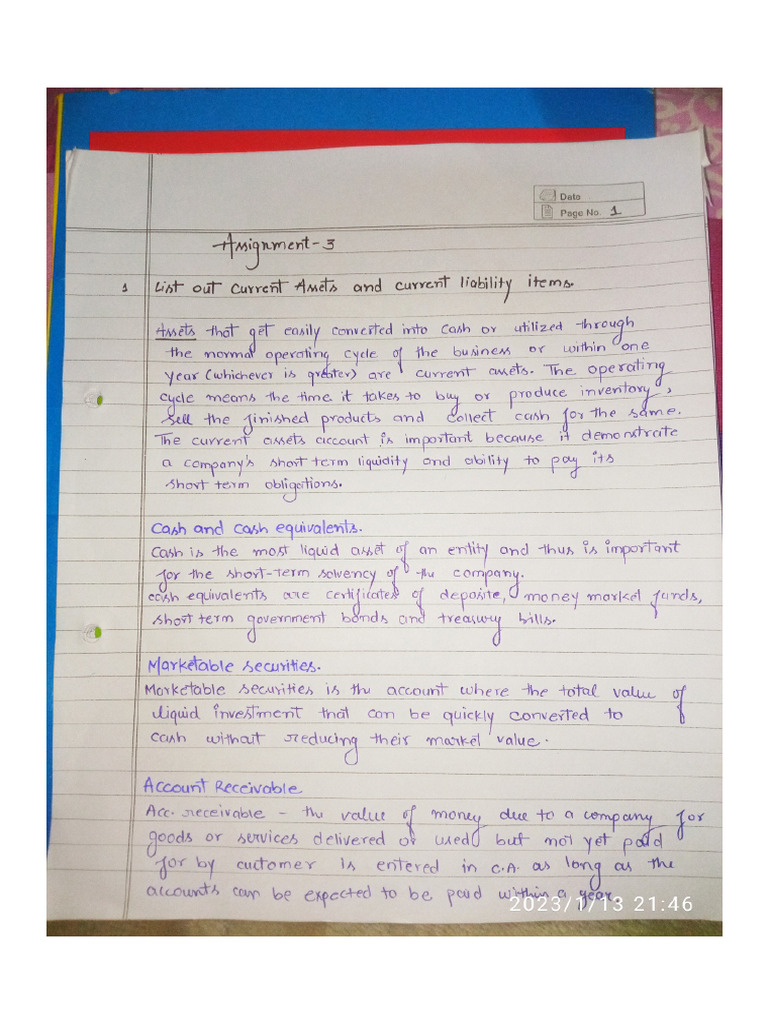 Date
Page No. 1
Assignment-3
1 List out current Assets and current liability items.
Assets that get easily converted into cash or utilized through
the normal operating cycle of the business or within one
year (whichever is greater) are current assets. The operating
cycle means the time it takes to buy or produce inventory,
sell the finished products and collect cash for the same.
The current assets account is important because it demonstrate
a company's short term liquidity and ability to pay its
short term obligations.
Cash and cash equivalents.
Cash is the most liquid asset of an entity and thus is important
for the short-term solvency of the company.
cash equivalents are certificates of deposite, money market funds,
short term government bonds and treasury bills.
Marketable securities.
Marketable securities is the account where the total value of
liquid investment that can be quickly converted to
cash without reducing their market value.
Account Receivable
Acc. receivable - the value of money due to a company for
goods or services delivered or used but not yet paid
for by cutomer is entered in C.A. as long as the
accounts can be expected to be paid within a year.
2023/1/13 21:46